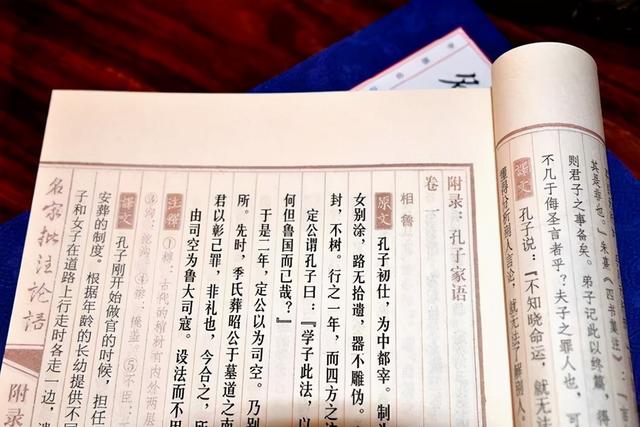 其是非也。”朱熹《四书集注》：“
则君子之事备矣。弟子记此以终篇，得
不几于侮圣言者乎？夫子之罪人也，可
译文 孔子说：“不知晓命运，就无法
懂得分析别人言论，就无法了解别人。
附录：孔子家语
卷一
相鲁
原文 孔子初仕，为中都宰。制为
女别涂，路无拾遗，器不雕伪。
封，不树。行之一年，而四方之诸
定公谓孔子曰：“学子此法，以
何但鲁国而已哉？”
于是二年，定公以为司空。乃别
所。先时，季氏葬昭公于墓道之南
君以彰己罪，非礼也，今合之，所
由司空为鲁大司寇。设法而不用
注释 ①椁：古代的棺材有内外两层
③沟：挖沟。④揜：掩盖。⑤不臣：
译文 孔子刚开始做官的时候，担任
安葬的制度。根据年龄的长幼提供不同
子和女子在道路上行走时各走一边，遗
名家批注论语
附录